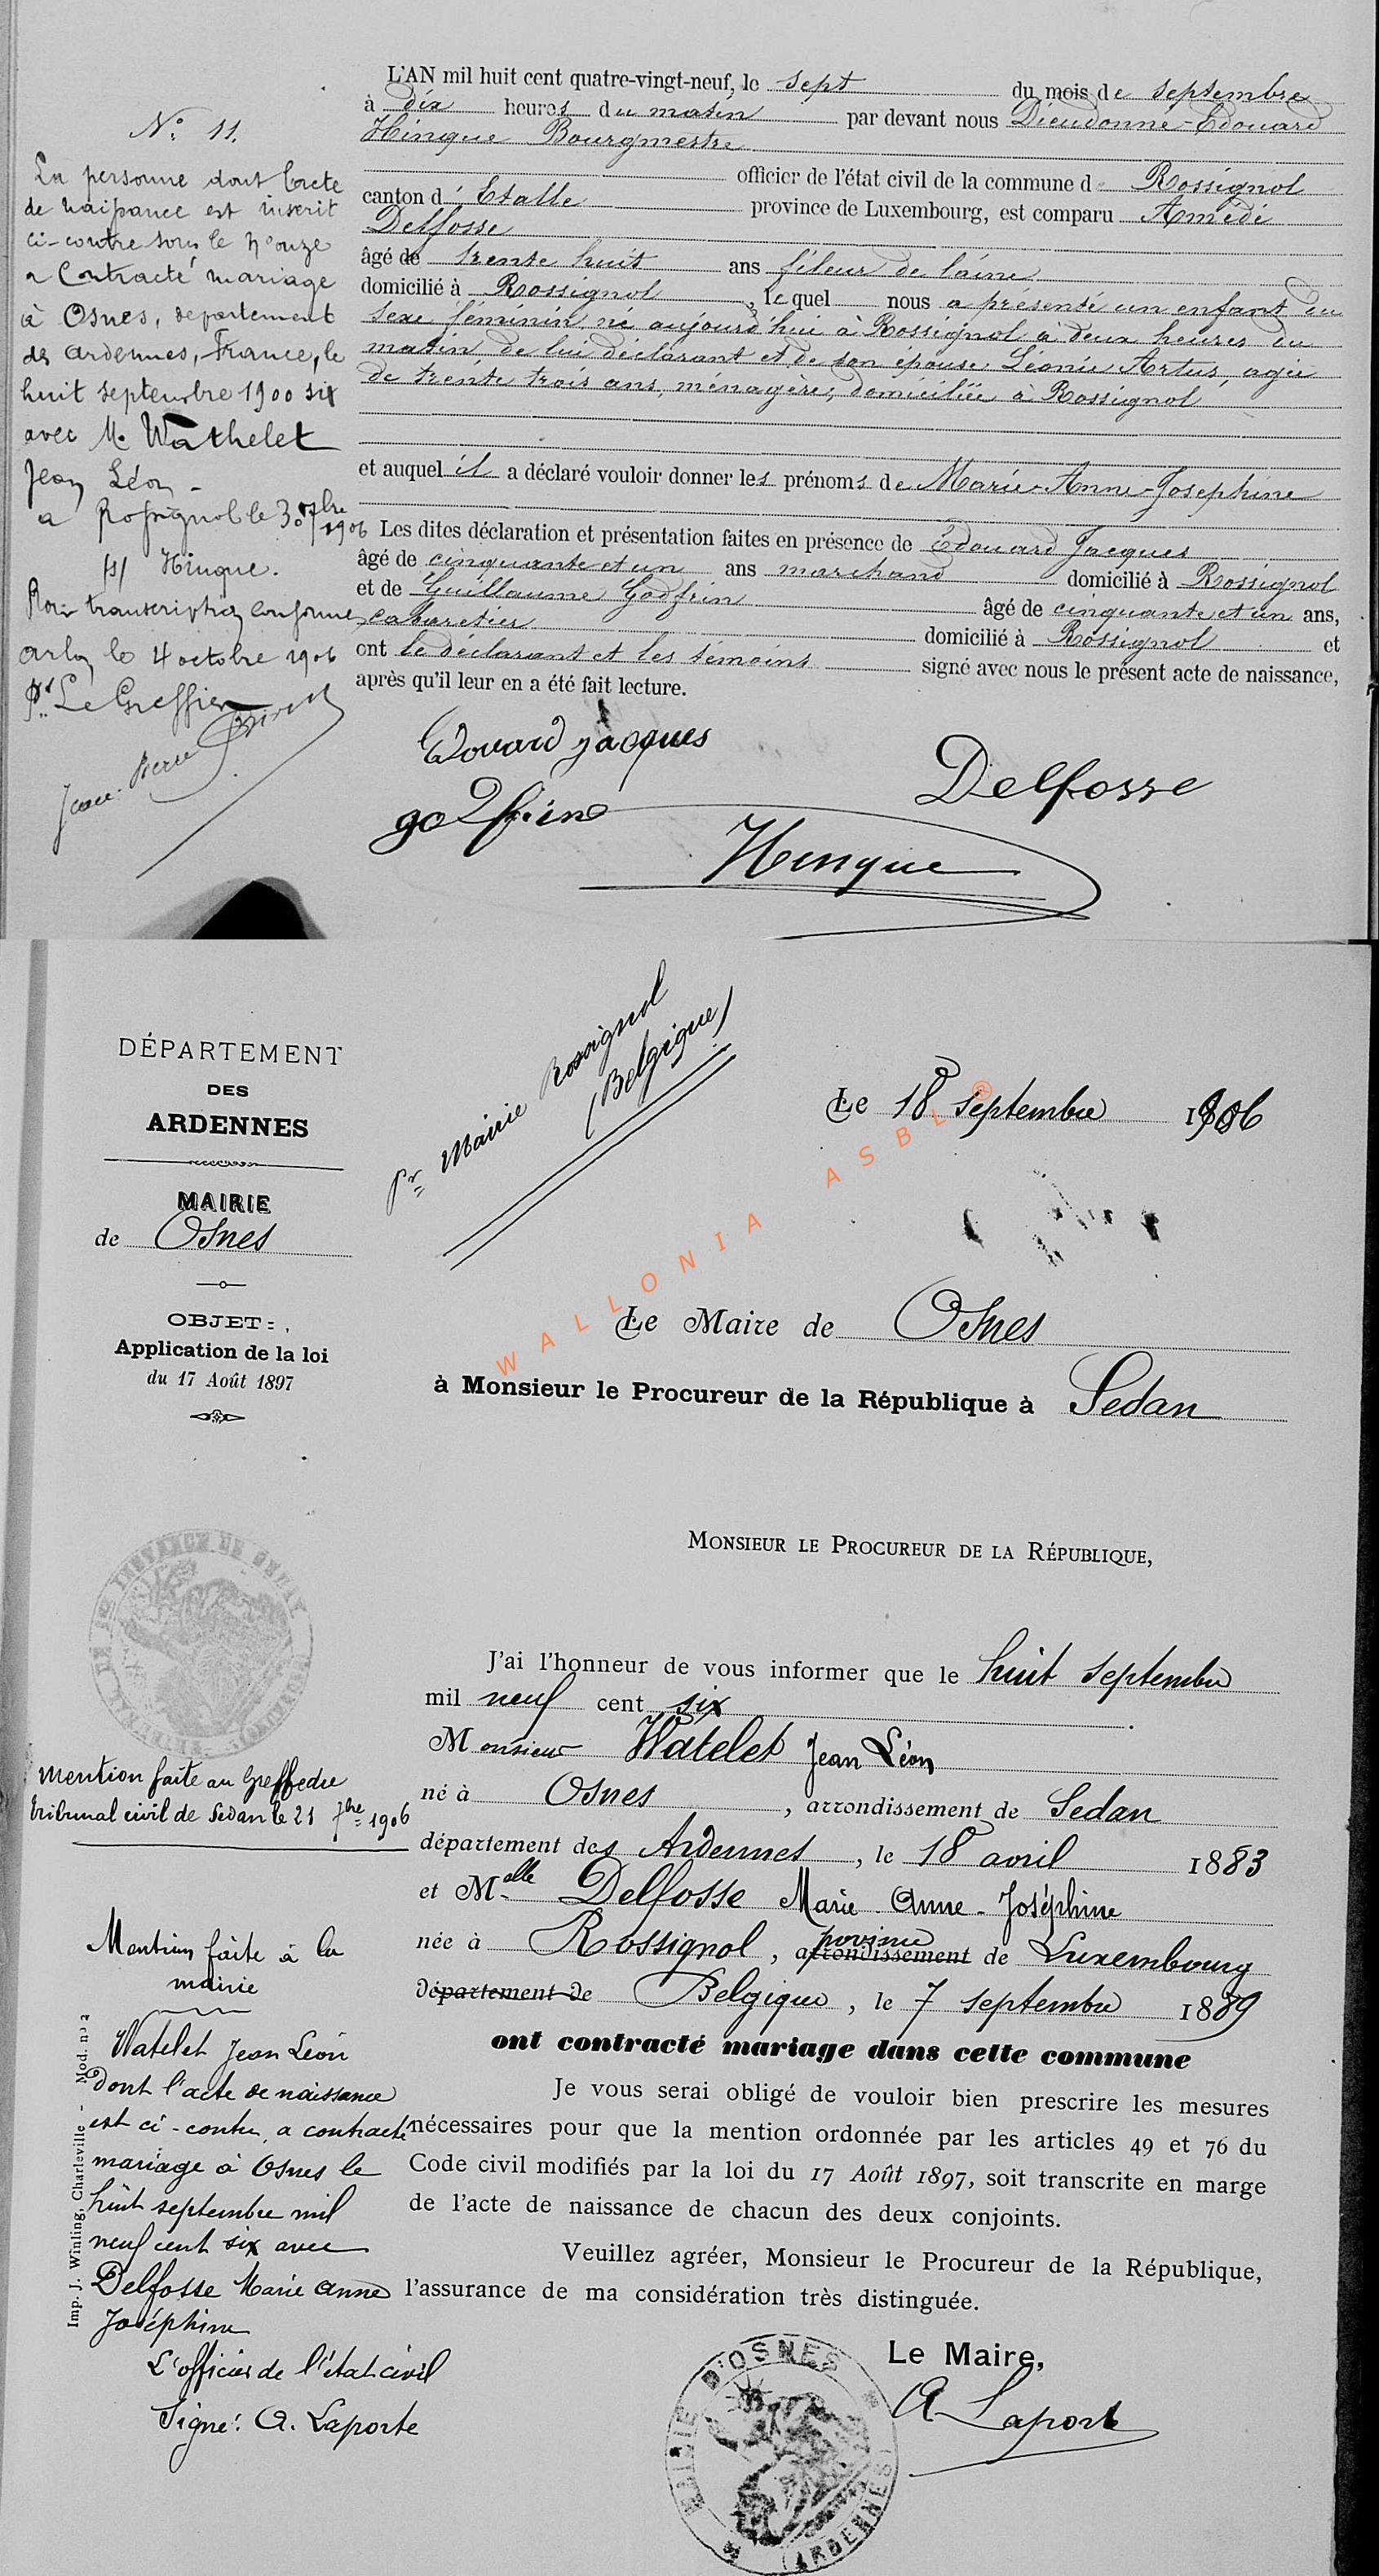 N° 11.
La personne dont l'acte
de naissance est inscrit
ci-contre sous le n° onze
a contracté mariage
à Osnes, département
des Ardennes, France, le
huit septembre 1900 six
avec M. Wathelet
Jean Léon -
a Rossignol le 30 7bre 1906
(s) Hinque.
Pour transcription conforme
Arlon le 4 octobre 1906
Le Greffier
L'AN mil huit cent quatre-vingt-neuf, le sept du mois de septembre
à dix heures du matin par devant nous Dieudonné-Edouard
Hinque Bourgmestre
officier de l'état civil de la commune d Rossignol
canton d'Etalle province de Luxembourg, est comparu Amédé
Delfosse
âgé de trente huit ans fileur de laine
domicilié à Rossignol, lequel nous a présenté un enfant du
sexe féminin, né aujourd'hui à Rossignol à deux heures du
matin, de lui déclarant et de son épouse Léonie Artus, agée
de trente trois ans, ménagère, domiciliée à Rossignol
et auquel il a déclaré vouloir donner les prénoms de Marie-Anne-Josephine
Les dites déclaration et présentation faites en présence de Edouard Jacques
âgé de cinquante et un ans marchand domicilié à Rossignol
et de Guillaume Godfrin âgé de cinquante et un ans,
cabaretier domicilié à Rossignol et
ont le déclarant et les témoins signé avec nous le présent acte de naissance,
après qu'il leur en a été fait lecture.
Edouard Jacques
Delfosse
godfrin
Hinque
DÉPARTEMENT
DES
ARDENNES
MAIRIE
de Osnes
OBJET:
Application de la loi
du 17 Août 1897
Pr Mairie Rossignol
(Belgique)
Le 18 septembre 1906
WALLONIA ASBL ®
Le Maire de Osnes
à Monsieur le Procureur de la République à Sedan
MONSIEUR LE PROCUREUR DE LA RÉPUBLIQUE,
J'ai l'honneur de vous informer que le huit septembre
mil neuf cent six
Monsieur Watelet Jean Léon
né à Osnes, arrondissement de Sedan
département des Ardennes, le 18 avril 1883
et Melle Delfosse Marie-Anne-Joséphine
née à Rossignol, arrondissement province de Luxembourg
département de Belgique, le 7 septembre 1889
ont contracté mariage dans cette commune
Je vous serai obligé de vouloir bien prescrire les mesures
nécessaires pour que la mention ordonnée par les articles 49 et 76 du
Code civil modifiés par la loi du 17 Août 1897, soit transcrite en marge
de l'acte de naissance de chacun des deux conjoints.
Veuillez agréer, Monsieur le Procureur de la République,
l'assurance de ma considération très distinguée.
Le Maire,
A Laporte
MAIRIE D'OSNES
(ARDENNES)
mention faite au Greffe du
tribunal civil de Sedan le 21 7bre 1906
Mention faite à la
mairie
Watelet Jean Léon
dont l'acte de naissance
est ci-contre, a contracté
mariage à Osnes le
huit septembre mil
neuf cent six avec
Delfosse Marie Anne
Joséphine
L'officier de l'état civil
Signé: A. Laporte
Imp. J. Winling, Charleville - Mod. n° 2